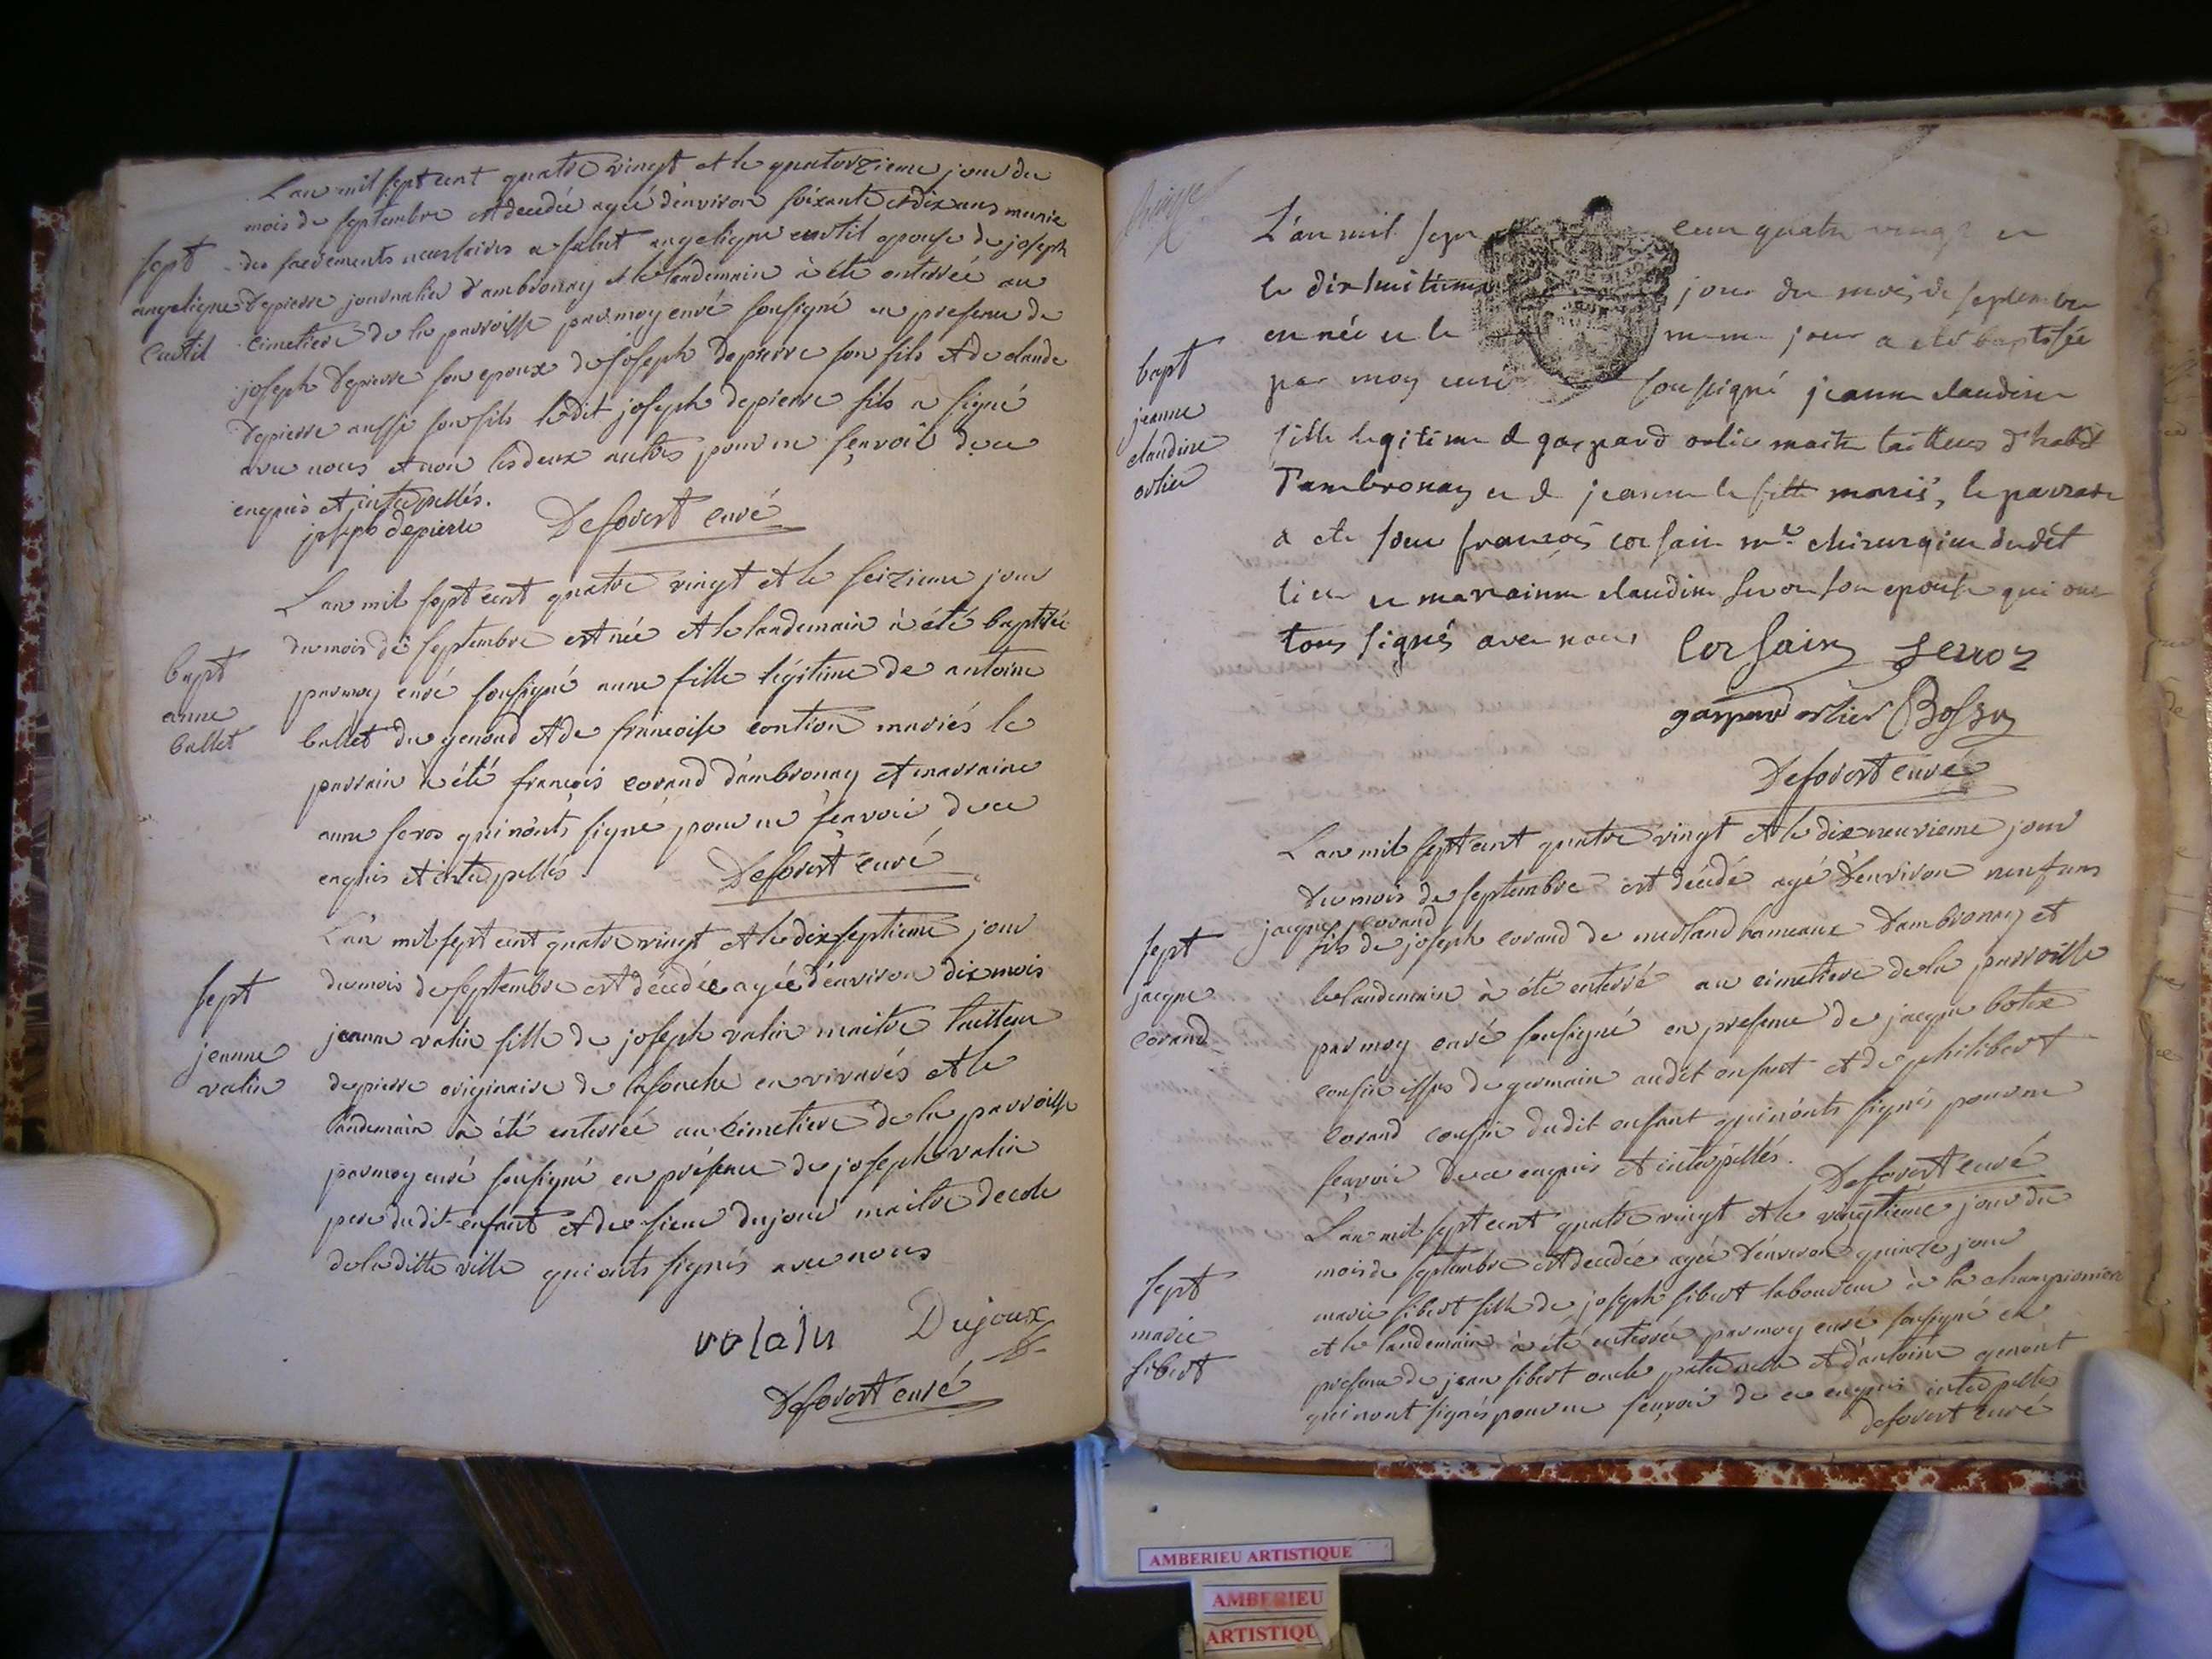 L'an mil sept cent quatre vingt et le quatorzieme jour du
mois de septembre est decedée agée d'environ soixante et dix ans munie
des sacrements necessaires a salut angelique cutil epouse de joseph
sept
angelique
cutil
depierre journalier d'ambronay et le landemain à été enterrée au
cimetiere de la parroisse par moy curé soussigné en presence de
joseph depierre son epoux de joseph depierre son fils et de claude
depierre aussi son fils ledit joseph depierre fils a signé
avec nous et non les deux autres pour ne sçavoir de ce
enquis et interpellés.
joseph depierre Deforest curé
L'an mil sept cent quatre vingt et le seizieme jour
du mois de septembre est née et le landemain à été baptisée
bapt
anne
ballet
par moy curé soussigné anne fille légitime de antoine
ballet du genoud et de francoise contion mariés le
parrain à été françois corand d'ambronay et marraine
anne seros qui n'onts signé pour ne sçavoir de ce
enquis et interpellés. Deforest curé
L'an mil sept cent quatre vingt et le dix septieme jour
du mois de septembre est décédée agée d'environ dix mois
sept
jeanne
valin
jeanne valin fille de joseph valin maitre tailleur
de pierre originaire de lasouche en vivarés et le
landemain à été enterrée au cimetiere de la parroisse
par moy curé soussigné en présence de joseph valin
pere dudit enfant et de sieur dujoux maitre decole
de laditte ville qui onts signés avec nous
Dujoux
Deforest curé
L'an mil sept cent quatre vingt et
le dix huitieme jour du mois de septembre
est née et le meme jour a eté baptisée
bapt
jeanne
claudine
orlier
par moy curé soussigné jeanne claudine
fille legitime de gaspard orlier maitre tailleur d'habit
d'ambronay et de jeanne la fille mariés, le parrain
a ete sieur françois corsain me chirurgien dudit
lieu et marrainne claudine servon son epouse qui ont
tous signés avec nous Corsain servoz
gaspard orlier Bossu
Deforest curé
L'an mil sept cent quatre vingt et le dix neuvieme jour
du mois de septembre est décédé agé d'environ neuf ans
jacque corand
sept
jacque
corand
fils de joseph corand de merland hameaux d'ambronay et
le landemain à été enterré au cimetiere de la parroisse
par moy curé soussigné en presence de jacque botex
cousin issus de germain audit enfant et de philibert
corand cousin dudit enfant qui n'onts signés pour ne
sçavoir de ce enquis et interpellés. Deforest curé
L'an mil sept cent quatre vingt et le vingtieme jour du
mois de septembre est decedée agée d'environ quinze jour
sept
marie
sibert
marie sibert fille de joseph sibert laboureur à la championiere
et le landemain à été enterrée par moy curé soussigné en
presence de jean sibert oncle paternelle et d'antoine genont
qui n'ont signés pour ne sçavoir de ce enquis interpellés
deforest curé
AMBERIEU ARTISTIQUE
AMBERIEU
ARTISTIQU